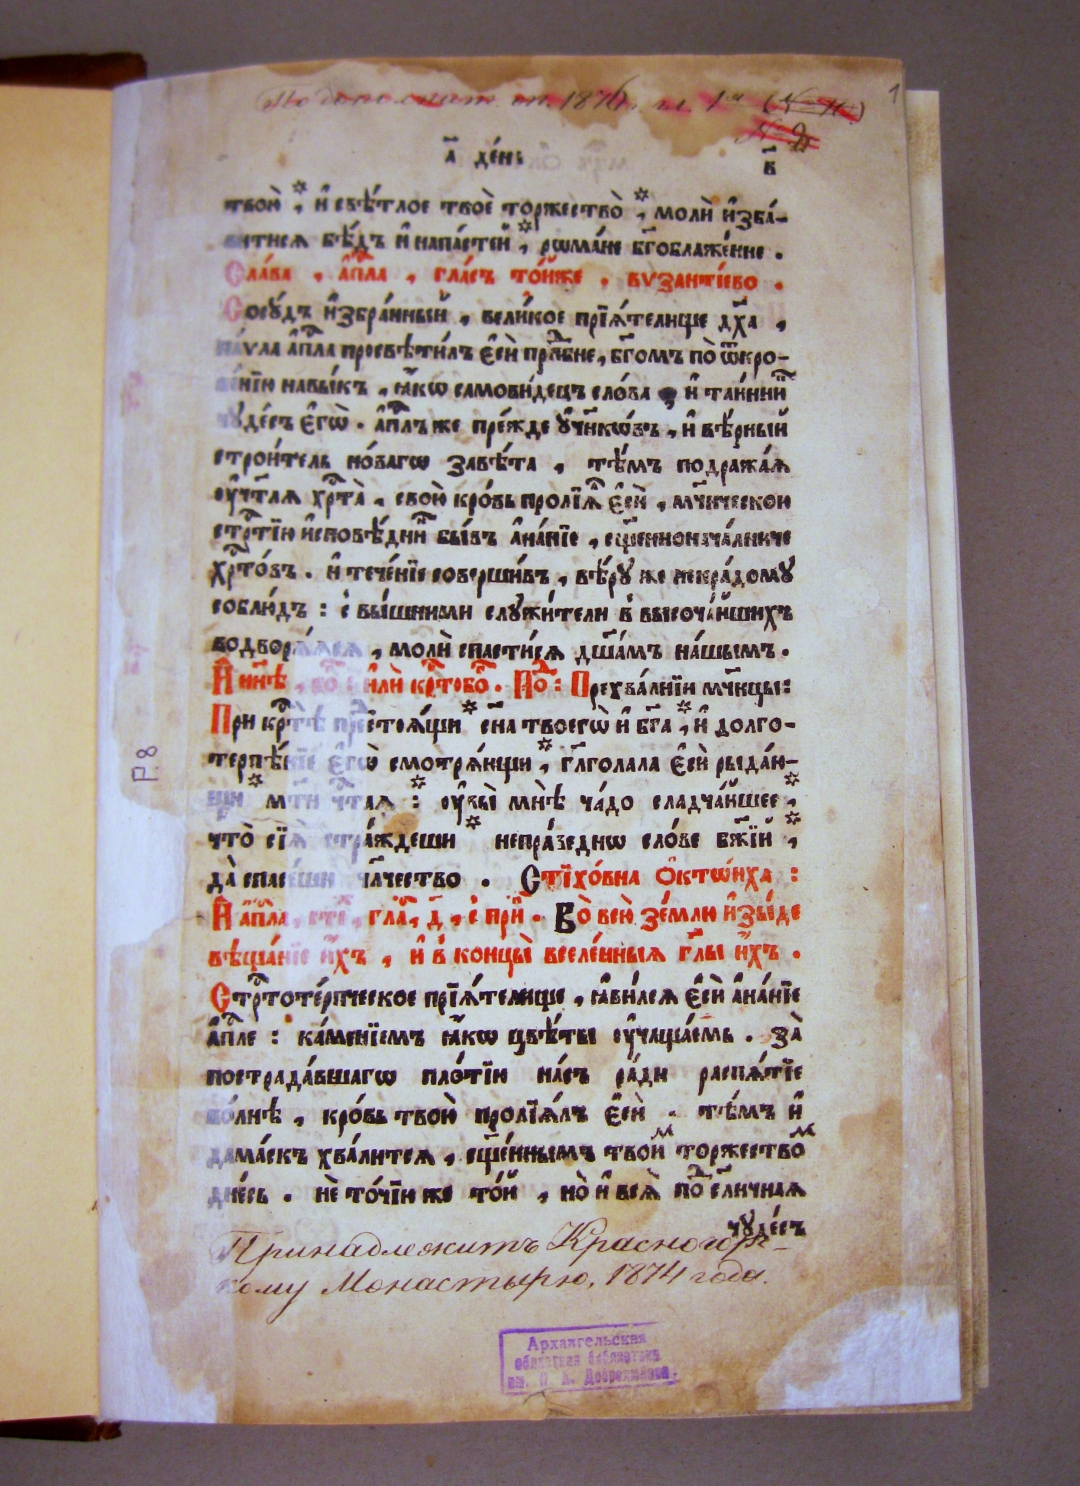 1
а҃ де́нь
в҃
твоѝ , и҆ свѣ́тлое твоѐ торжество̀ , молѝ и҆зба́-
витися бѣ́дъ и҆ напа́стей , рѡма́не бг҃облаже́нне .
Сла́ва , а҆пⷭ҇ла , гла́съ то́йже , вѵзанті́ево .
Сосꙋ́дъ и҆збра́нный , вели́кое прїѧ́телище дх҃а ,
па́ѵла а҆пⷭ҇ла просвѣти́лъ є҆сѝ прпⷣбне , бг҃омъ по̀ ѿкро-
ве́нїю навы́къ , ꙗ҆́кѡ самови́децъ сло́ва , и҆ та́инникⷩ҇
чꙋде́съ є҆гѡ̀ . а҆пⷭ҇лъ же пре́жде ᲂу҆чн҃кѡ́въ , и҆ вѣ́рный
строи́тель но́вагѡ завѣ́та , тѣ́мъ подража́ѧ
ᲂу҆чт҃лѧ хрⷭ҇та̀ , свою̀ кро́вь пролїѧ́лⷧ҇ є҆сѝ , мч҃нческои
стрⷭ҇тїи и҆сповѣ́дникⷩ҇ бы́въ а҆на́нїе , сщ҃енноначалниче
хрⷭ҇то́въ . и҆ тече́нїе соверши́въ , вѣ́рꙋ же некра́домꙋ
соблю́дъ : с̾ вы́шними слꙋжи́тели в̾ высоча́йшихъ
водворѧ́ѧсѧ , молѝ спасти́сѧ дш҃а́мъ на́шымъ .
И҆ ны́нѣ , бо҃ : и҆лѝ крⷭ҇тобо҃ . Поⷣ : Прехва́лнїи мч҃нцы :
При крⷭ҇тѣ̀ предстоѧ́щи сн҃а твоегѡ̀ и҆ бг҃а , и҆ долго-
терпѣ́нїе є҆гѡ̀ смотрѧ́ющи , гл҃голала є҆сѝ рыда́ю-
щи мт҃и чт҃ая : ᲂу҆вы̀ мнѣ̀ ча́до сладча́йшее ,
что̀ сїѧ̀ стра́ждеши непра́веднѡ сло́ве бж҃їй ,
да̀ спасе́ши чл҃чество . Стїхо́вна Ѻ҆ктѡ́иха :
И҆ а҆пⷭ҇ла , стⷯ , гла҃ , д҃ , с̾ прⷪ . Во̀ всю̀ зе́млю и҆зы́де
вѣща́нїе и҆́хъ , и҆ в̾ концы̀ вселе́нныѧ гл҃ы и҆́хъ .
Стрⷭ҇тоте́рпческое прїѧ́телище , ꙗ҆ви́лсѧ є҆сѝ а҆на́нїе
а҆пⷭ҇ле : ка́менїемъ ꙗ҆́кѡ цвѣ́ты ᲂу҆чаща́емь . за̀
пострада́вшагѡ пло́тїю на́съ ра́ди распѧ́тїе
во́лнѣ , кро́вь твою̀ пролїѧ́лъ є҆сѝ . тѣ́мъ и҆
дама́скъ хва́литсѧ , сщ҃е́ннымъ твоѝм торжествоⷨ
дне́сь . нѐ то́чїю же то́й , но̀ и҆ всѧ̀ поⷣсл҃ничная
чꙋде́съ
Принадлежитъ Красногор-
скому Монастырю, 1874 года.
Архангельская
областная библиотека
им. Н. А. Добролюбова
Р.8